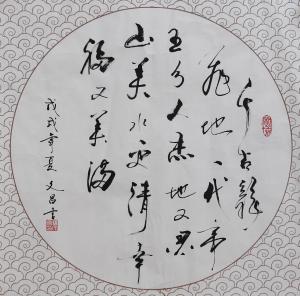 千古龍
飛地一代帝
王乡人杰地又灵
山美水更清幸
福又美满
戊戌年夏文昌书